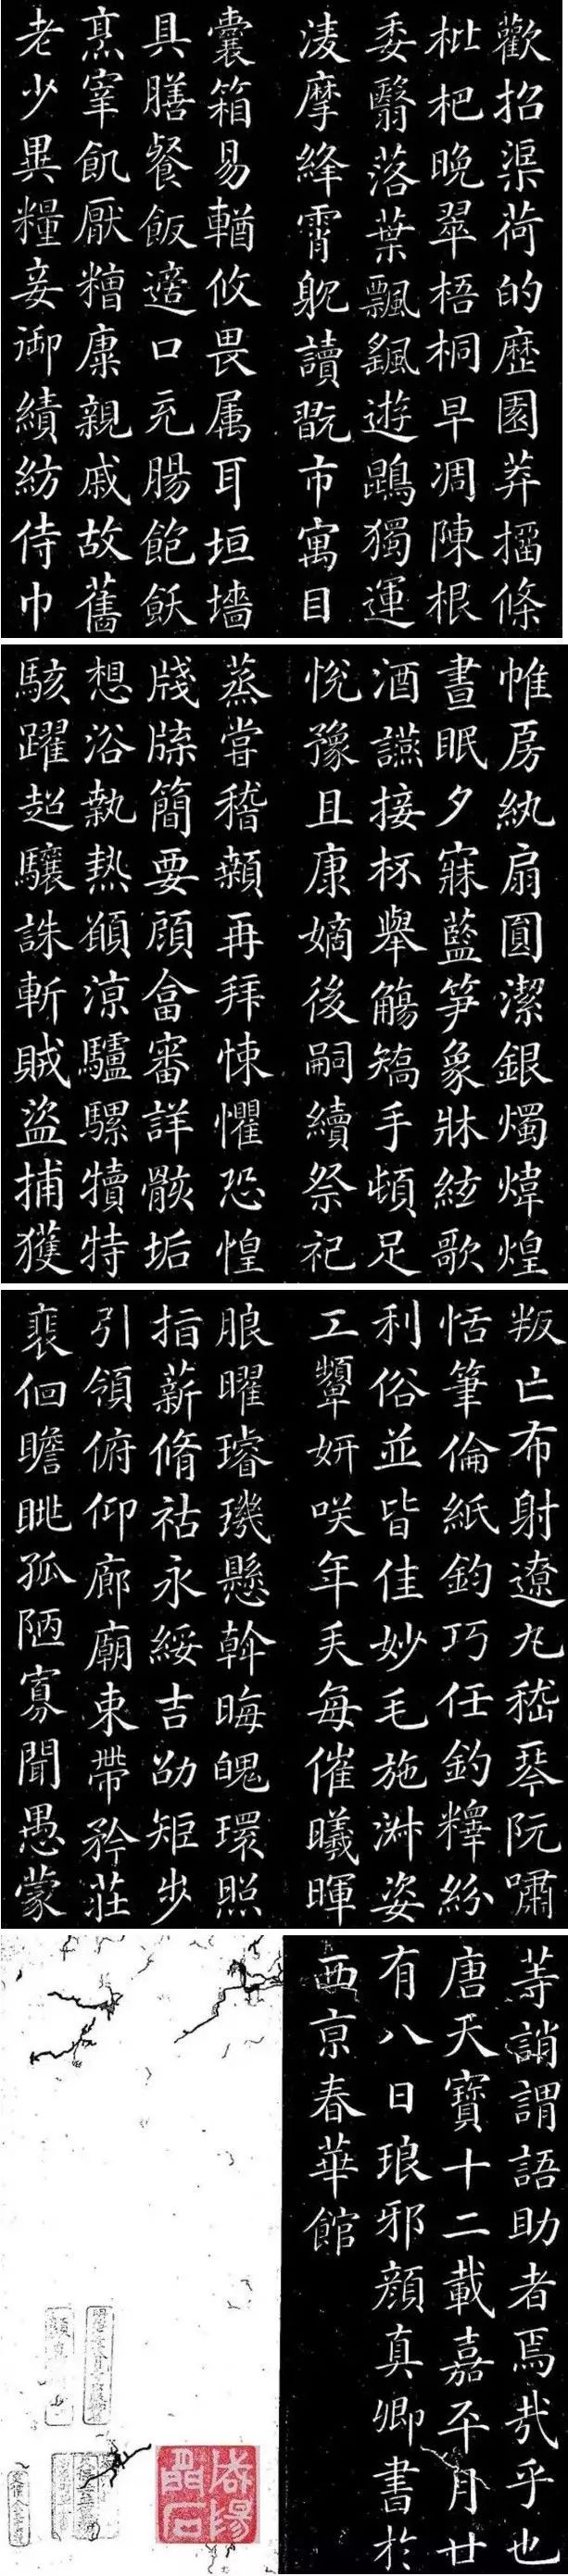 歡招渠荷的歷園莽㩅條
枇杷晚翠梧桐早凋陳根
委翳落葉飄颻遊鵾獨運
淩摩絳霄躭讀翫市寓目
囊箱易輶攸畏属耳垣墻
具膳餐飯適口充腸飽飫
烹宰飢厭糟糠親戚故舊
老少異糧妾御績紡侍巾
帷房紈扇圓潔銀燭煒煌
晝眠夕寐藍笋象牀絃歌
酒讌接杯舉觴矯手頓足
悅豫且康嫡後嗣續祭祀
蒸嘗稽顙再拜悚懼恐惶
牋牒簡要顧畣審詳骸垢
想浴執熱願凉驢騾犢特
駭躍超驤誅斬賊盜捕獲
叛亡布射遼丸嵇琴阮嘯
恬筆倫紙鈞巧任釣釋紛
利俗並皆佳妙毛施淑姿
工顰妍咲年矢每催曦暉
朗曜璿璣懸斡晦魄環照
指薪脩祜永綏吉劭矩步
引領俯仰廊廟束帶矜莊
裵佪瞻眺孤陋寡聞愚蒙
等誚謂語助者焉哉乎也
唐天寶十二載嘉平月廿
有八日琅邪顏真卿書於
西京春華館